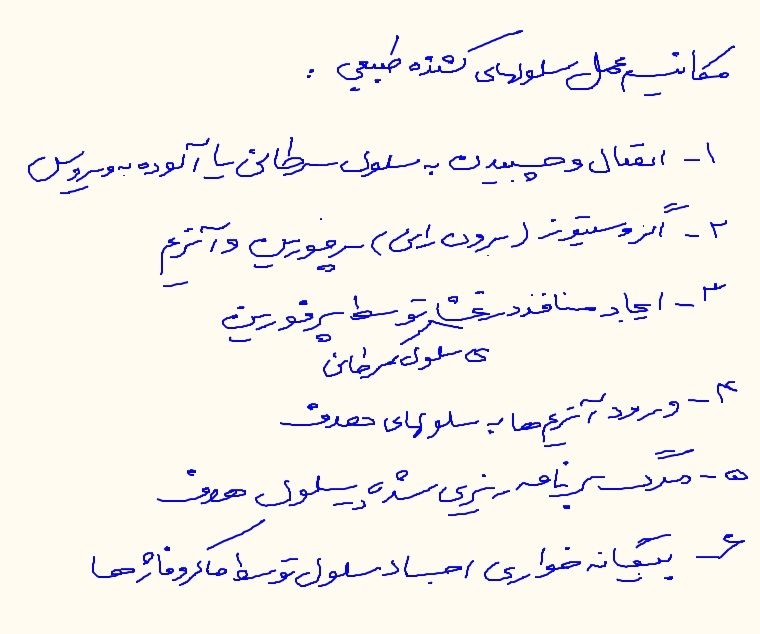 مکانیسم عمل سلولهای کشنده طبیعی :
۱- اتصال و چسبیدن به سلول سرطانی یا آلوده به ویروس
۲- اگزوسیتوز (برون رانی) پرفورین و آنزیم
۳- ایجاد منافذ در غشا توسط پرفورین
ی سلول سرطانی
۴- ورود آنزیم ها به سلولهای هدف
۵- مرگ برنامه ریزی شده سلول هدف
۶- بیگانه خواری اجساد سلول توسط ماکروفاژها